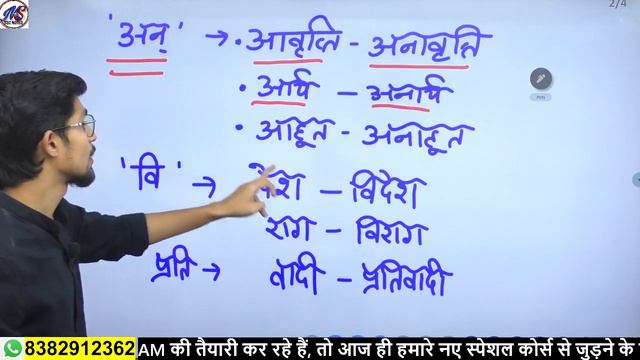 2/4
'अन्' → • आवृत्ति - अनावृत्ति
• आर्य - अनार्य
• आहूत - अनाहूत
'वि' → देश - विदेश
राग - विराग
प्रति → वादी - प्रतिवादी
8382912362 AM की तैयारी कर रहे हैं, तो आज ही हमारे नए स्पेशल कोर्स से जुड़ने के